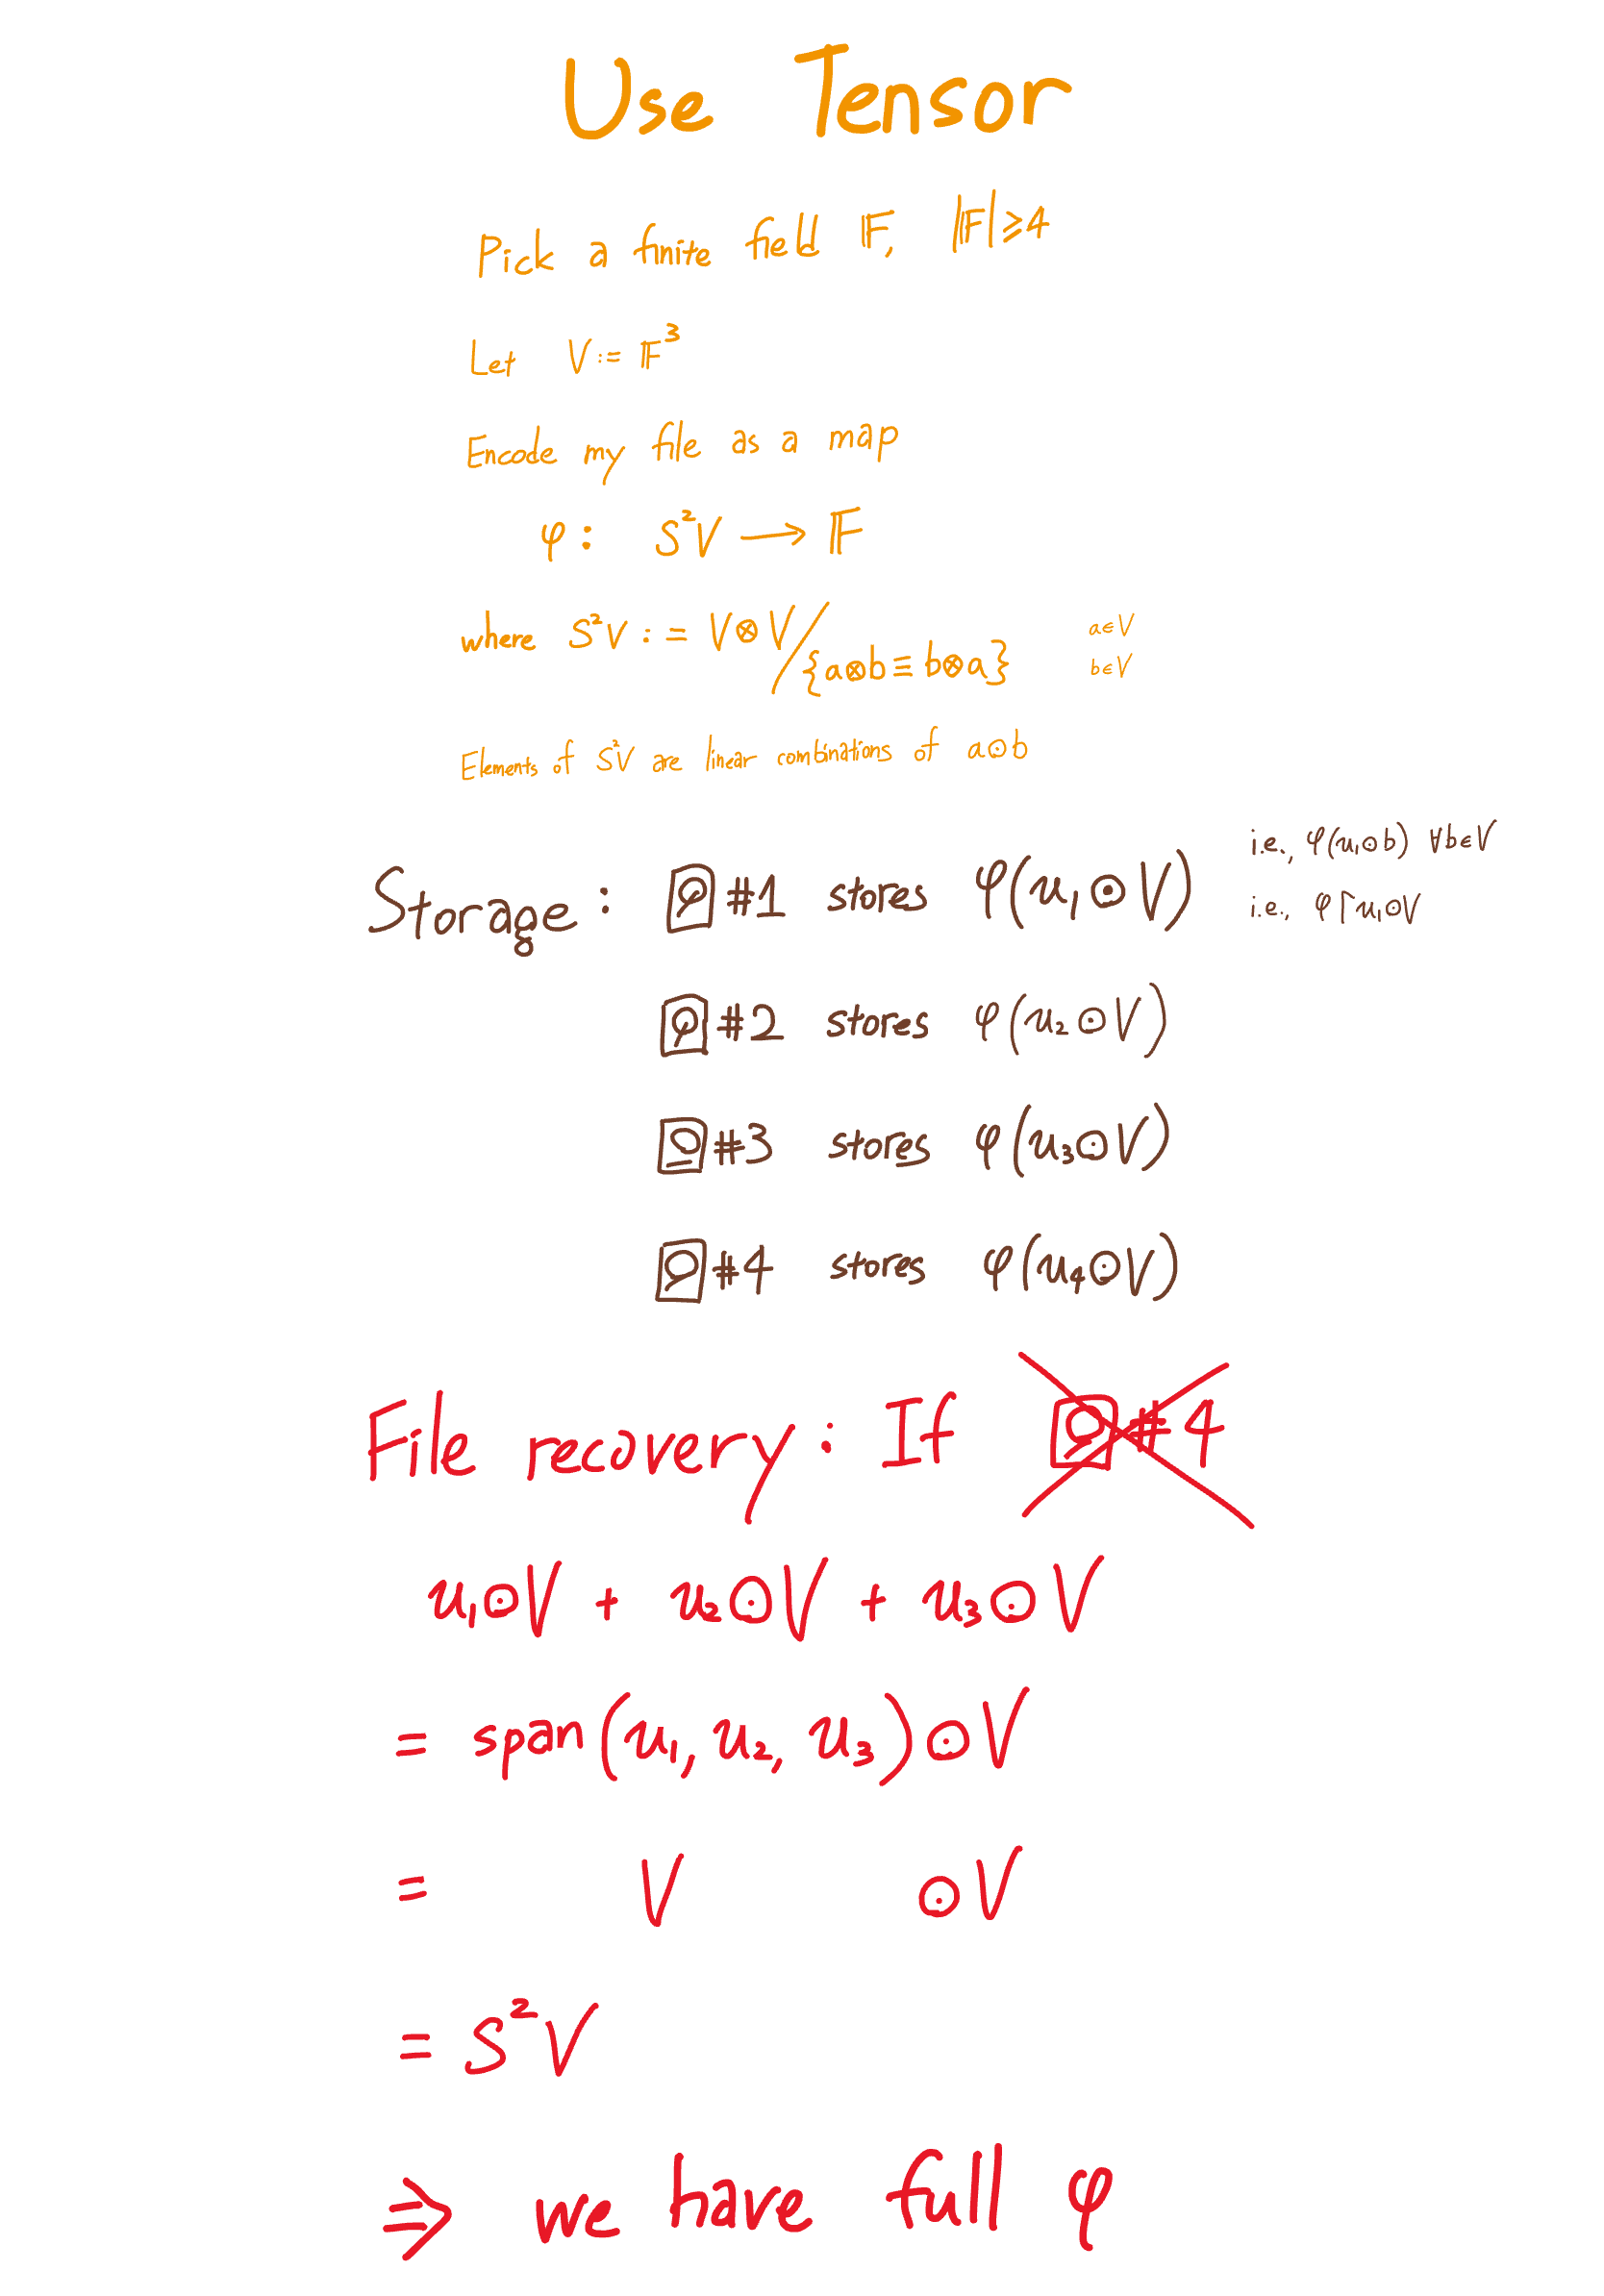 Use Tensor
Pick a finite field 𝔽, |𝔽|⩾4
Let V:= 𝔽³
Encode my file as a map
φ: S²V ⟶ 𝔽
where S²V := V⊗V/{a⊗b≡b⊗a} a∈V b∈V
Elements of S²V are linear combinations of a⊙b
Storage: #1 stores φ(u₁⊙V) i.e., φ(u₁⊙b) ∀b∈V
i.e., φ↾u₁⊙V
#2 stores φ(u₂⊙V)
#3 stores φ(u₃⊙V)
#4 stores φ(u₄⊙V)
File recovery: If #4
u₁⊙V + u₂⊙V + u₃⊙V
= span(u₁, u₂, u₃)⊙V
= V ⊙V
= S²V
⇒ we have full φ